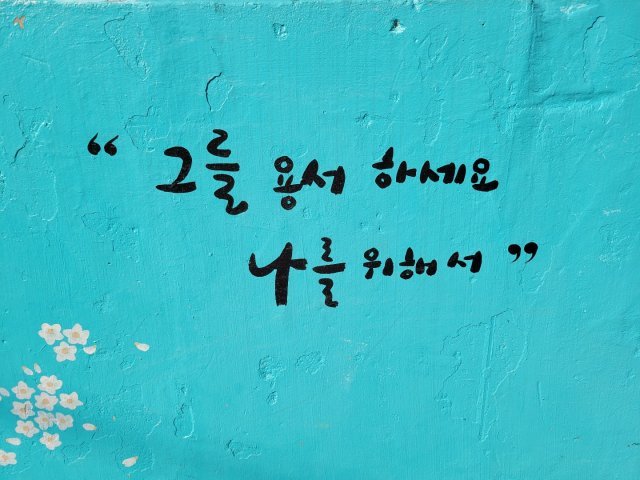 “ 그를 용서 하세요
나를 위해서 ”